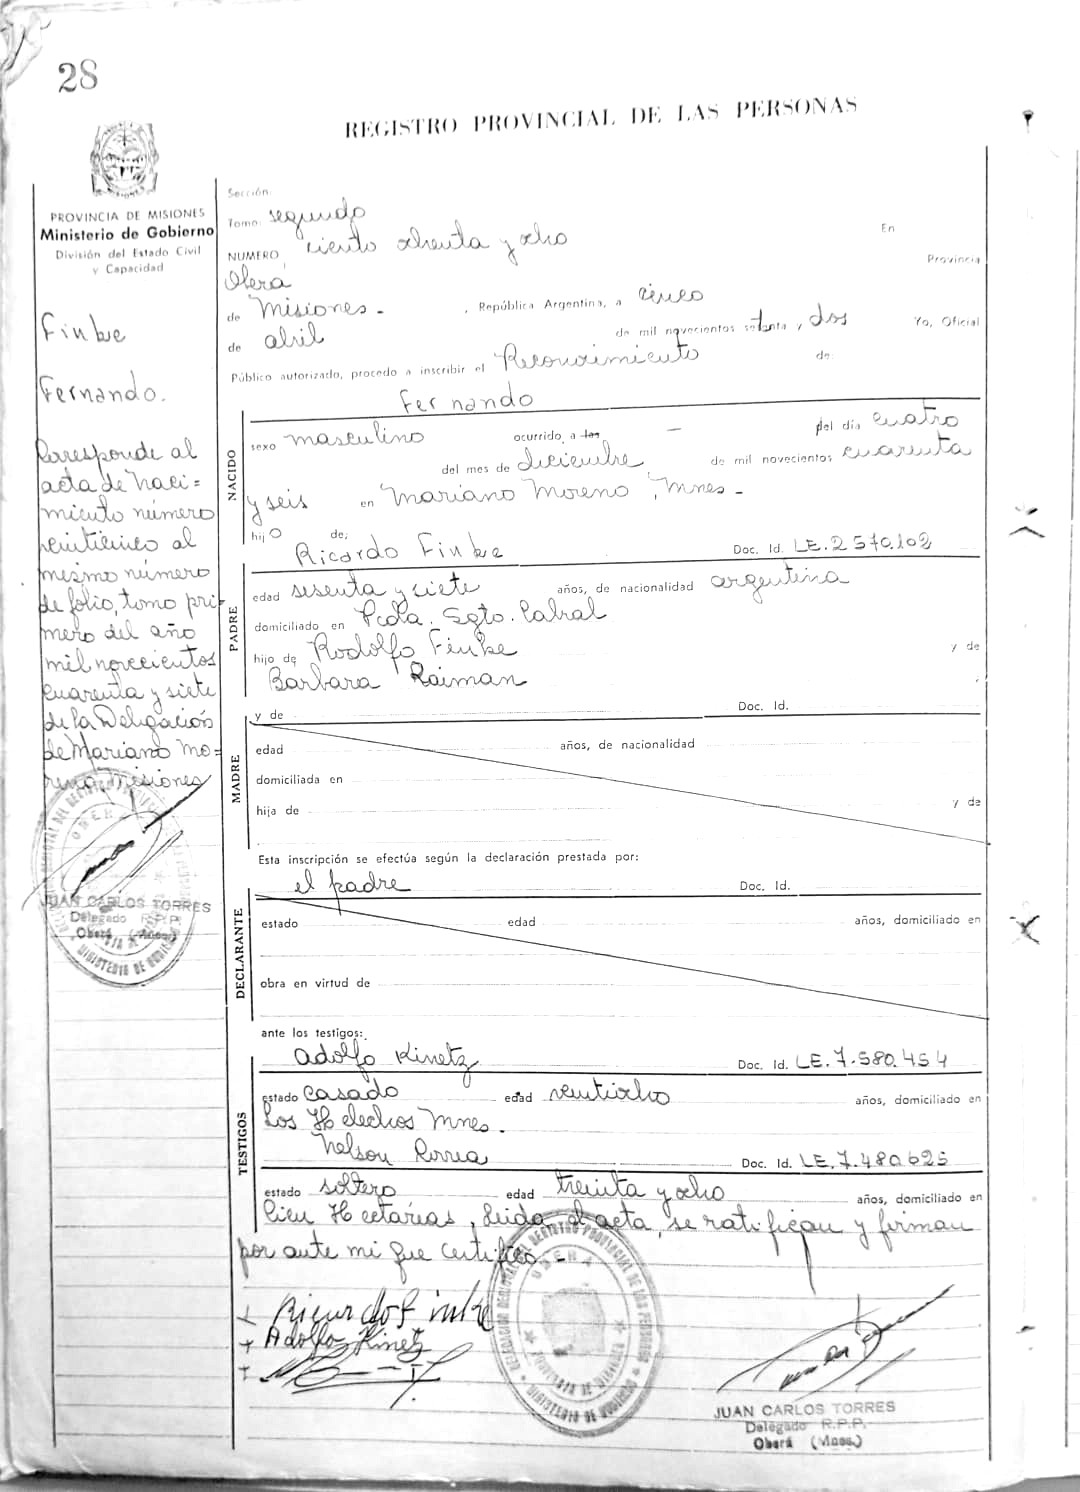 28
REGISTRO PROVINCIAL DE LAS PERSONAS
PROVINCIA DE MISIONES
Ministerio de Gobierno
División del Estado Civil
y Capacidad
Finke
Fernando.
Corresponde al
acta de naci=
miento número
veinticinco al
mesmo número
de folio, tomo pri-
mero del año
mil novecientos
cuarenta y siete
de la Delegación
de Mariano Mo=
reno, Misiones
JUAN CARLOS TORRES
Delegado R.P.P.
Oberá (Mnes.)
Sección
Tomo segundo
NUMERO ciento ochenta y ocho En
Obera Provincia
de Misiones - , República Argentina, a cinco
de abril de mil novecientos setenta y dos Yo, Oficial
Público autorizado, procedo a inscribir el Reconocimiento de:
Fernando
NACIDO
sexo masculino ocurrido a las - del día cuatro
del mes de diciembre de mil novecientos cuarenta
y seis en Mariano Moreno, Mnes -
hijo de:
Ricardo Finke Doc. Id. LE. 2570.102
PADRE
edad sesenta y siete años, de nacionalidad argentina
domiciliado en Pcia. Sgto. Cabral
hijo de Rodolfo Finke y de
Barbara Raiman
y de Doc. Id.
MADRE
edad años, de nacionalidad
domiciliada en
hija de y de
Esta inscripción se efectúa según la declaración prestada por:
el padre Doc. Id.
DECLARANTE
estado edad años, domiciliado en
obra en virtud de
ante los testigos:
Adolfo Kinetz Doc. Id. LE. 7.580.454
TESTIGOS
estado casado edad ventiocho años, domiciliado en
Los Helechos Mnes.
Nelson Doc. Id. LE. 7.480.625
estado soltero edad treinta y ocho años, domiciliado en
Cien Hectarias, Leida el acta, se ratifican y firman
por ante mi que certifico. -
+ Ricardo Finke
+ Adolfo Kinetz
+
OBERA
MINISTERIO DE GOBIERNO
JUAN CARLOS TORRES
Delegado R.P.P.
Oberá (Mnes.)